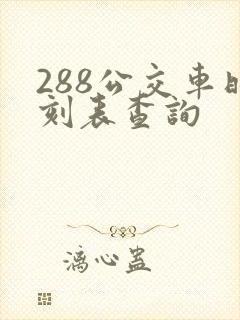 288公交車時
刻表查詢
漓心蠱